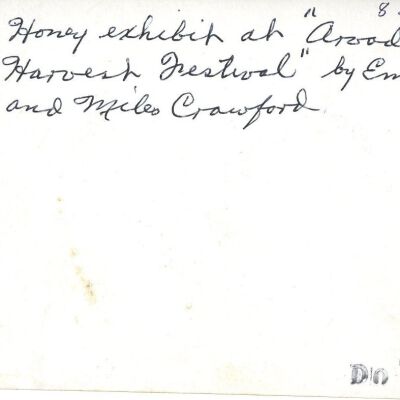 8
Honey exhibit at "Arvad
Harvest Festival" by Em
and Miles Crawford
Do